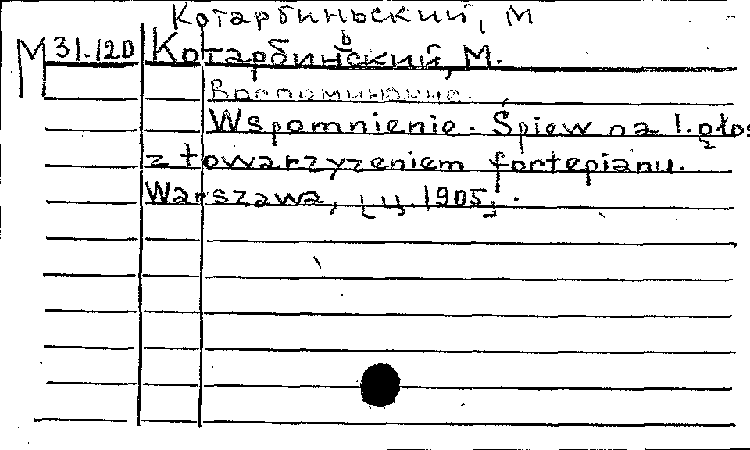 Котарбиньский, М
М 31/120 Котарбиньский, М.
Воспоминание.
Wspomnienie. Śpiew na 1. głos
z towarzyzeniem fortepianu.
Warszawa, [ц. 1905].